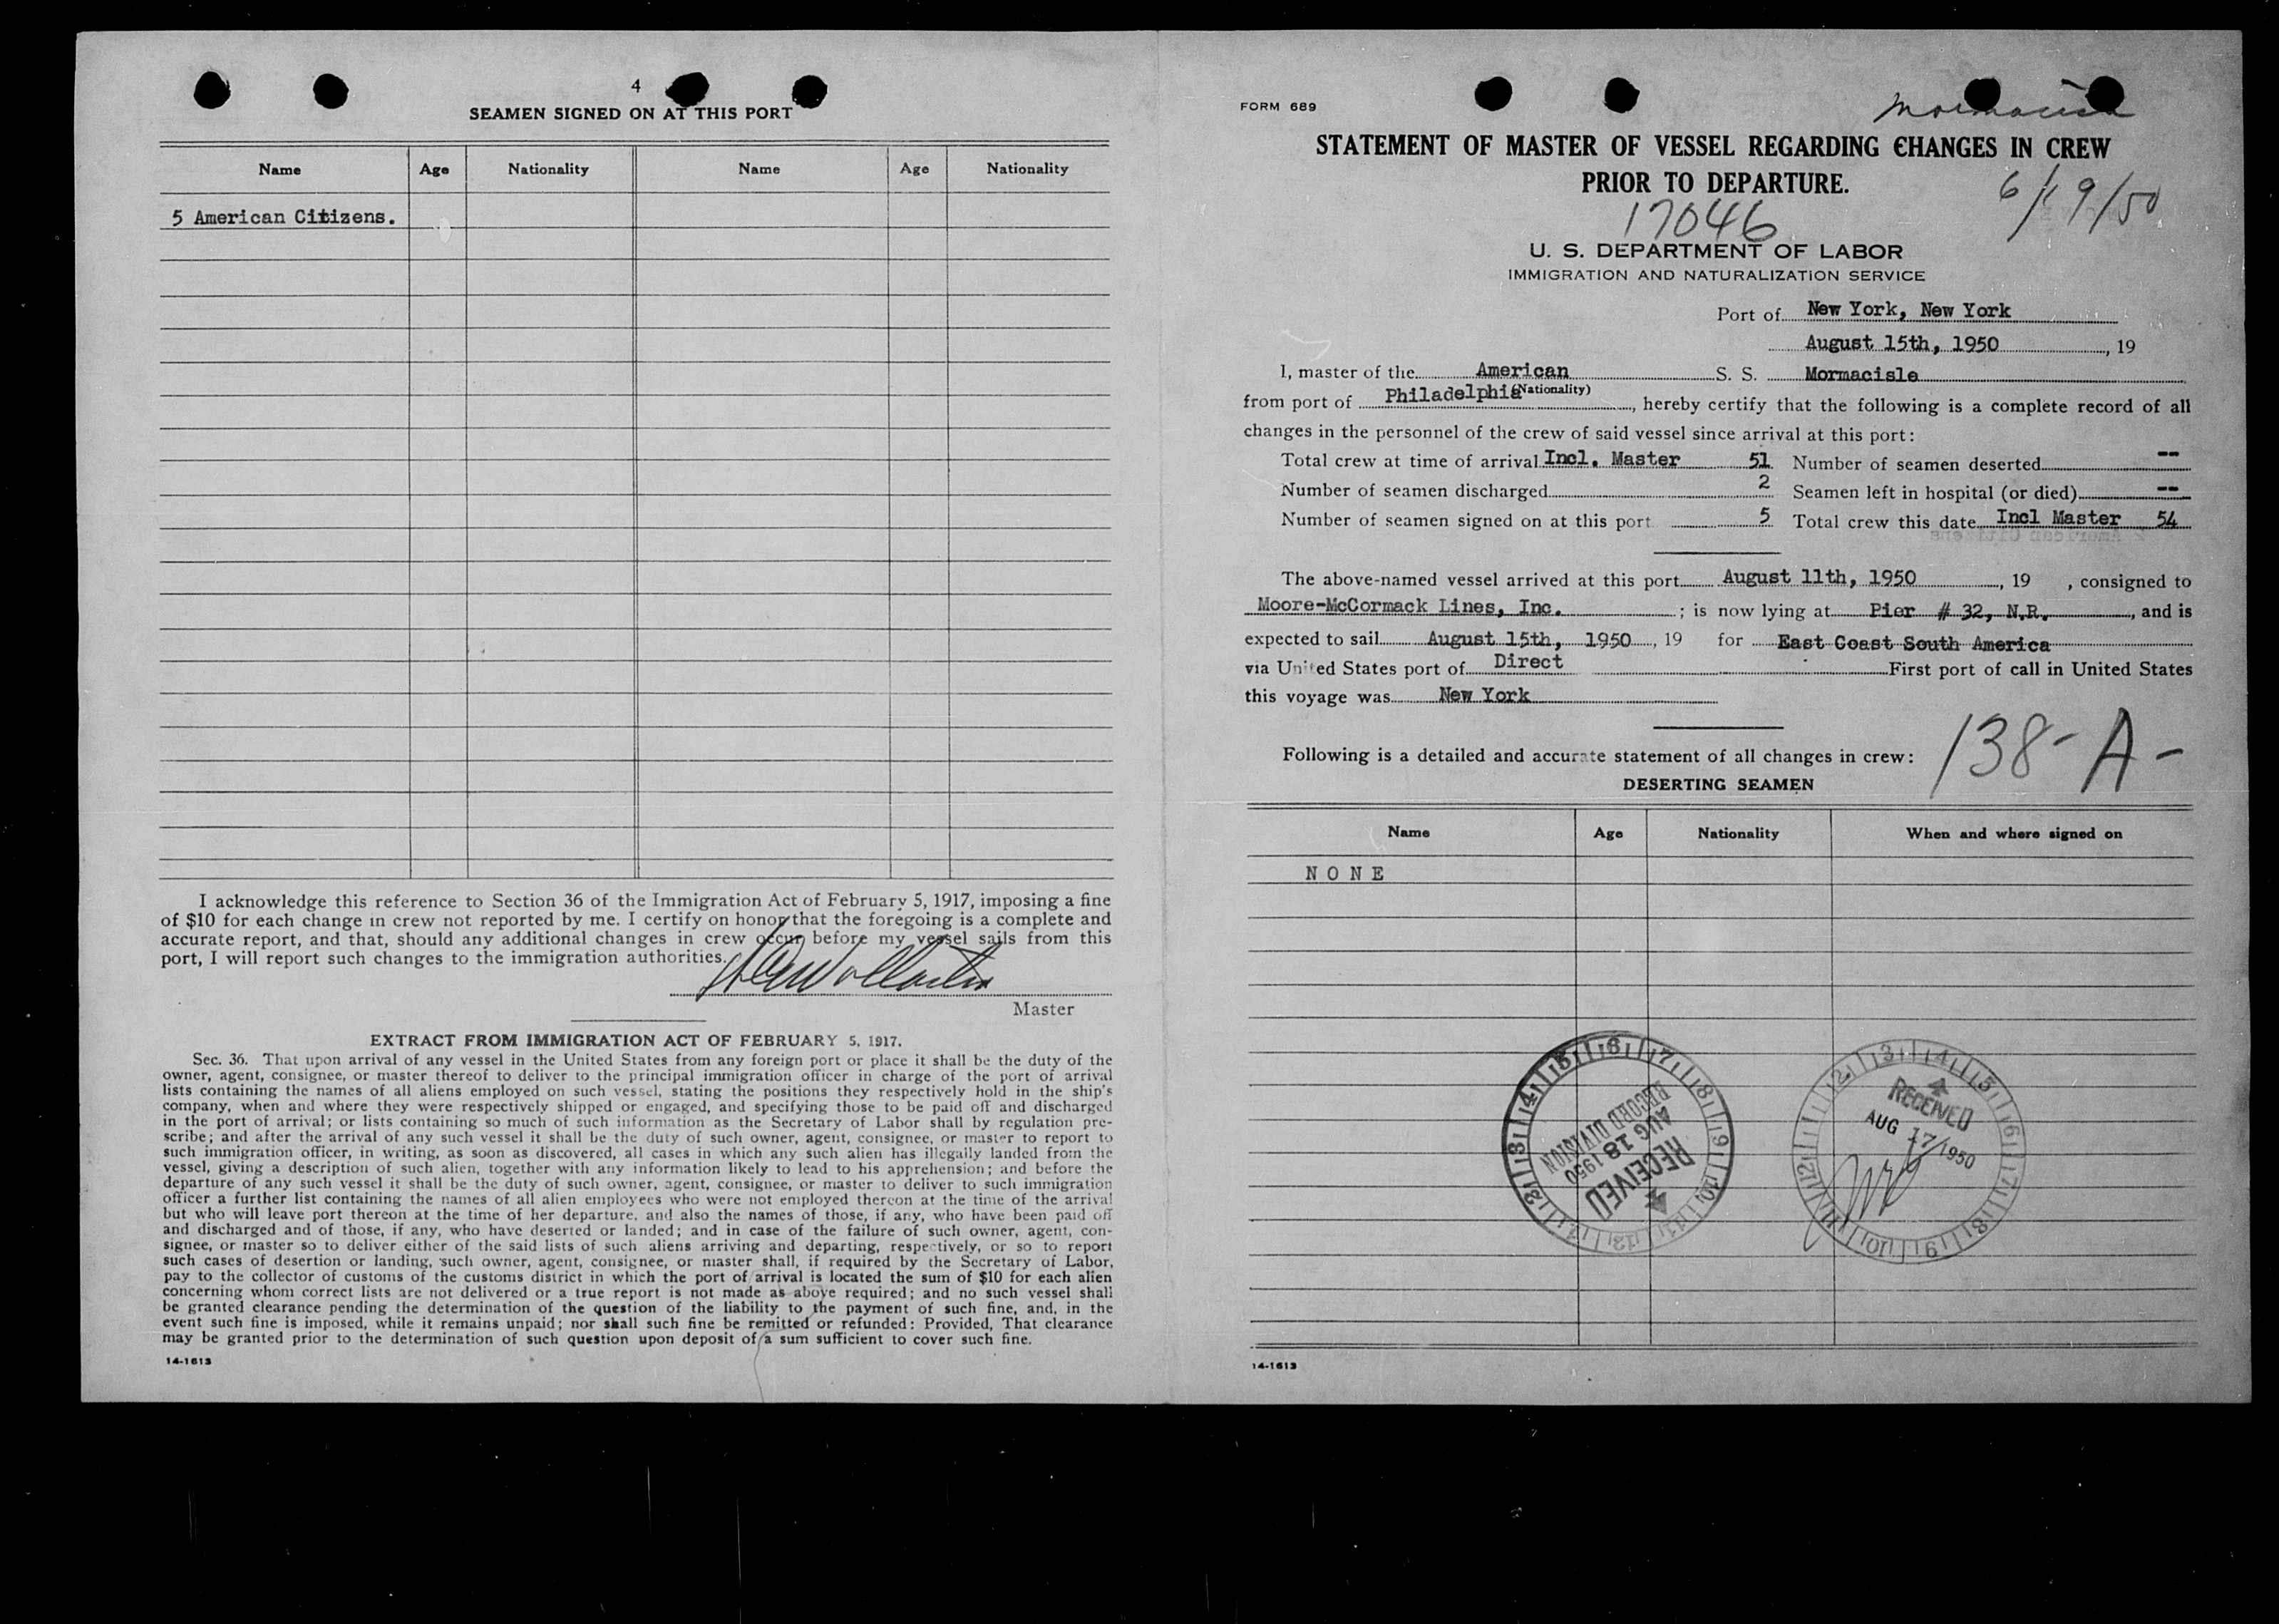 4
SEAMEN SIGNED ON AT THIS PORT
Name Age Nationality Name Age Nationality
5 American Citizens.
I acknowledge this reference to Section 36 of the Immigration Act of February 5, 1917, imposing a fine
of $10 for each change in crew not reported by me. I certify on honor that the foregoing is a complete and
accurate report, and that, should any additional changes in crew occur before my vessel sails from this
port, I will report such changes to the immigration authorities.
Master
EXTRACT FROM IMMIGRATION ACT OF FEBRUARY 5, 1917.
Sec. 36. That upon arrival of any vessel in the United States from any foreign port or place it shall be the duty of the
owner, agent, consignee, or master thereof to deliver to the principal immigration officer in charge of the port of arrival
lists containing the names of all aliens employed on such vessel, stating the positions they respectively hold in the ship's
company, when and where they were respectively shipped or engaged, and specifying those to be paid off and discharged
in the port of arrival; or lists containing so much of such information as the Secretary of Labor shall by regulation pre-
scribe; and after the arrival of any such vessel it shall be the duty of such owner, agent, consignee, or master to report to
such immigration officer, in writing, as soon as discovered, all cases in which any such alien has illegally landed from the
vessel, giving a description of such alien, together with any information likely to lead to his apprehension; and before the
departure of any such vessel it shall be the duty of such owner, agent, consignee, or master to deliver to such immigration
officer a further list containing the names of all alien employees who were not employed thereon at the time of the arrival
but who will leave port thereon at the time of her departure, and also the names of those, if any, who have been paid off
and discharged and of those, if any, who have deserted or landed; and in case of the failure of such owner, agent, con-
signee, or master so to deliver either of the said lists of such aliens arriving and departing, respectively, or so to report
such cases of desertion or landing, such owner, agent, consignee, or master shall, if required by the Secretary of Labor,
pay to the collector of customs of the customs district in which the port of arrival is located the sum of $10 for each alien
concerning whom correct lists are not delivered or a true report is not made as above required; and no such vessel shall
be granted clearance pending the determination of the question of the liability to the payment of such fine, and, in the
event such fine is imposed, while it remains unpaid; nor shall such fine be remitted or refunded: Provided, That clearance
may be granted prior to the determination of such question upon deposit of a sum sufficient to cover such fine.
14-1613
FORM 689
STATEMENT OF MASTER OF VESSEL REGARDING CHANGES IN CREW
PRIOR TO DEPARTURE.
6/19/50
17046
U. S. DEPARTMENT OF LABOR
IMMIGRATION AND NATURALIZATION SERVICE
Port of New York, New York
August 15th, 1950, 19
I, master of the American S. S. Mormacisle
(Nationality)
from port of Philadelphia, hereby certify that the following is a complete record of all
changes in the personnel of the crew of said vessel since arrival at this port:
Total crew at time of arrival Incl. Master 51 Number of seamen deserted --
Number of seamen discharged 2 Seamen left in hospital (or died) --
Number of seamen signed on at this port 5 Total crew this date Incl Master 54
The above-named vessel arrived at this port August 11th, 1950, 19 , consigned to
Moore-McCormack Lines, Inc. ; is now lying at Pier # 32, N.R., and is
expected to sail August 15th, 1950, 19 for East Coast South America
via United States port of Direct First port of call in United States
this voyage was New York
Following is a detailed and accurate statement of all changes in crew:
138-A-
DESERTING SEAMEN
Name Age Nationality When and where signed on
NONE
RECEIVED
AUG 18 1950
RECORD DIVISION
RECEIVED
AUG 17 1950
14-1613